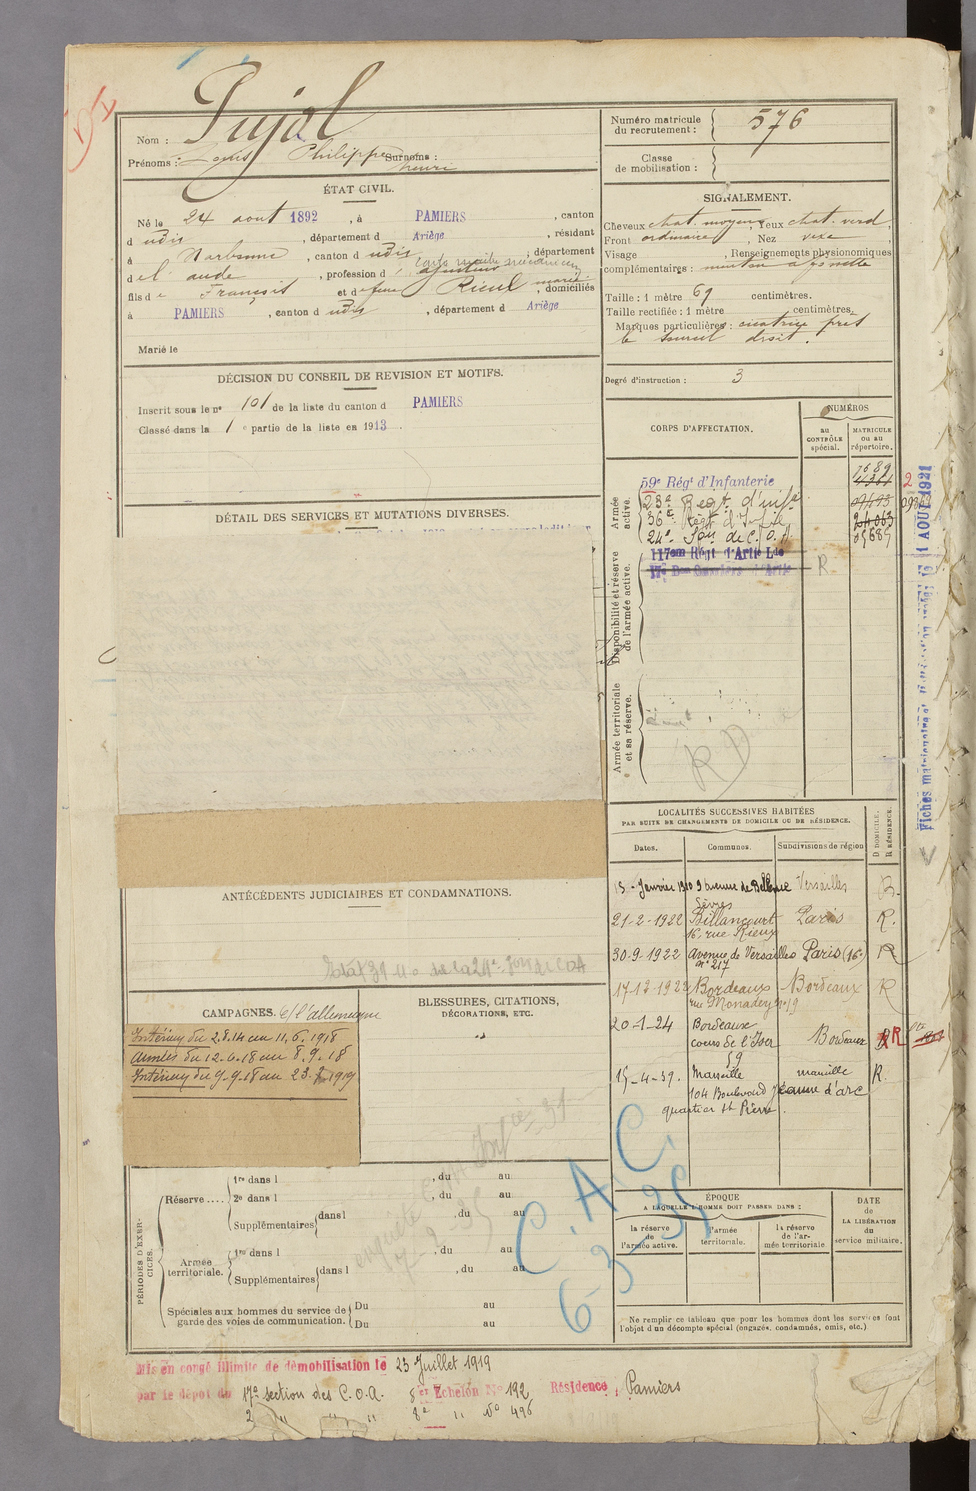 Pujol
Nom :
Prénoms : Louis Philippe Surnoms :
henri
ÉTAT CIVIL.
Né le 24 aout 1892, à PAMIERS, canton
d udis, département d Ariège, résidant
à Narbonne, canton d udis, département
de l'aude, profession d'ajusteur
fils de François et de feue Rieul marie, domiciliés
à PAMIERS, canton d udis, département d Ariège
Marié le
DÉCISION DU CONSEIL DE REVISION ET MOTIFS.
Inscrit sous le nº 101 de la liste du canton d PAMIERS
Classé dans la 1 e partie de la liste en 1913.
DÉTAIL DES SERVICES ET MUTATIONS DIVERSES.
ANTÉCÉDENTS JUDICIAIRES ET CONDAMNATIONS.
CAMPAGNES. c/ l'allemagne
Intérieur du 2.8.14 au 11.6.1918
Armées du 12.6.18 au 8.9.18
Intérieur du 9.9.18 au 23.7.1919
BLESSURES, CITATIONS,
DÉCORATIONS, ETC.
PÉRIODES D'EXERCICES.
Réserve ....
1re dans l , du au
2e dans l , du au
Supplémentaires dans l , du au
Armée
territoriale.
1re dans l , du au
Supplémentaires dans l , du au
Spéciales aux hommes du service de
garde des voies de communication.
Du au
Du au
Mis en congé illimité de démobilisation le 23 Juillet 1919
par le dépôt du 17e section des C.O.A. 8e Echelon Nº 192 Résidence, Pamiers
2 " " " 8e " Nº 496
Numéro matricule
du recrutement : 576
Classe
de mobilisation :
SIGNALEMENT.
Cheveux chat. moyens, Yeux chat. verd
Front ordinaire, Nez vexe,
Visage , Renseignements physionomiques
complémentaires : menton a fossette
Taille : 1 mètre 69 centimètres.
Taille rectifiée : 1 mètre centimètres.
Marques particulières : cicatrice près
le sourcil droit.
Degré d'instruction : 3
CORPS D'AFFECTATION.
NUMÉROS
au
CONTRÔLE
spécial.
MATRICULE
ou au
répertoire.
Armée
active.
59e Régt d'Infanterie 7689
4361
23e Régt d'infie
36e Régt d'Infie 24063
24e Son de C.O.A. 05685
117em Régt d'Artie Lde
17e Bon Ouvriers d'Artie R
Disponibilité et réserve
de l'armée active.
Armée territoriale
et sa réserve.
R D
Fiches matriculaires 1 AOUT 1921
LOCALITÉS SUCCESSIVES HABITÉES
PAR SUITE DE CHANGEMENTS DE DOMICILE OU DE RÉSIDENCE.
Dates. Communes. Subdivisions de région
D DOMICILE.
R RÉSIDENCE.
13 - Janvier 1920 9 avenue de Bellevue Versailles R.
Sèvres
21-2-1922 Billancourt Paris R.
16 rue Rieux
30-9-1922 Avenue de Versailles Paris (16e R
nº 217
17-12-1922 Bordeaux Bordeaux R
rue Monadey nº 19
20-1-24 Bordeaux
cours de l'Yser Bordeaux R
59
15-4-39. Marseille marseille R.
104 Boulevard Jeanne d'arc
quartier St Pierre.
ÉPOQUE
A LAQUELLE L'HOMME DOIT PASSER DANS :
la réserve
de
l'armée active.
l'armée
territoriale.
la réserve
de l'ar-
mée territoriale.
DATE
de
LA LIBÉRATION
du
service militaire.
Ne remplir ce tableau que pour les hommes dont les services font
l'objet d'un décompte spécial (engagés, condamnés, omis, etc.)
C.A.C.
6-3-35